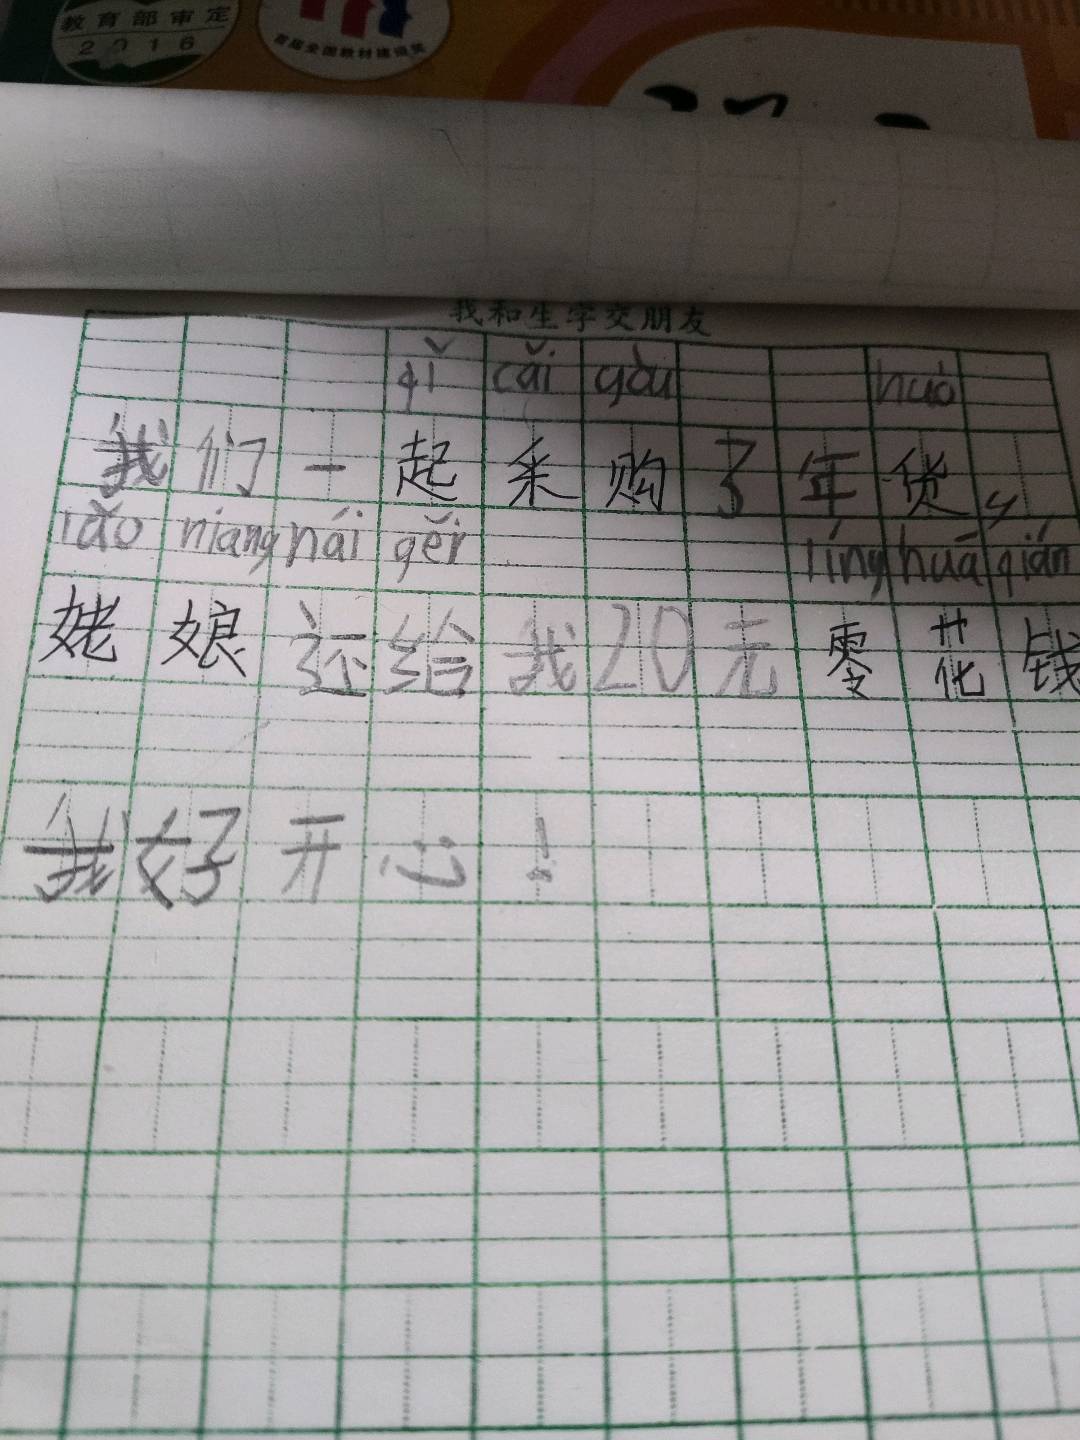 教育部审定
2016
首届全国教材建设奖
我和生字交朋友
qǐ cǎi gòu huò
我们一起采购了年货,
lǎo niang hái gěi líng huā qián
姥娘还给我20元零花钱
我好开心!